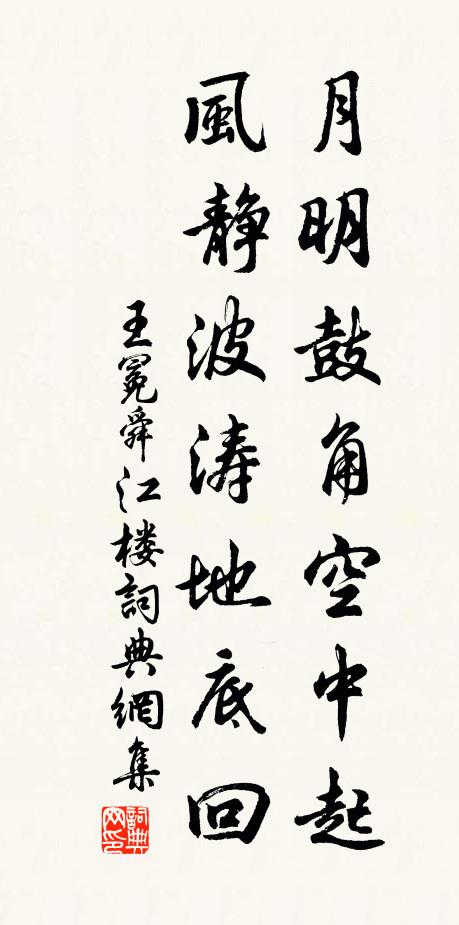 月明鼓角空中起
風静波涛地底回
王冕舜江楼詞典網集
詞典网印